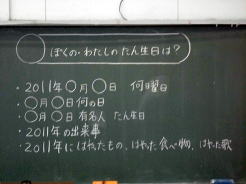 ぼくの・わたしのたん生日は？
・2011年〇月〇日 何曜日
・〇月〇日何の日
・〇月〇日 有名人 たん生日
・2011年の出来事
・2011年にはやったもの、はやった食べ物、はやった歌